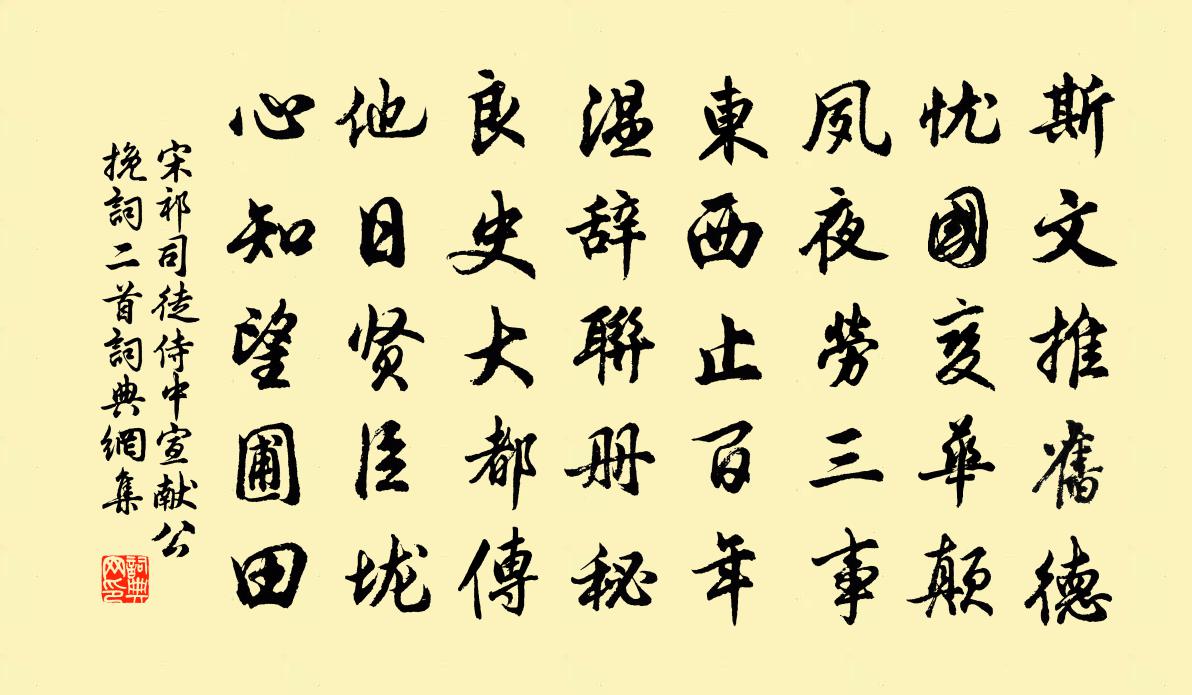 斯文推舊德
忧國变華颠
夙夜劳三事
東西止百年
温辞聯册秘
良史大都傳
他日贤臣垅
心知望圃田
宋祁司徒侍中宣献公
挽詞二首詞典網集
詞典
网印